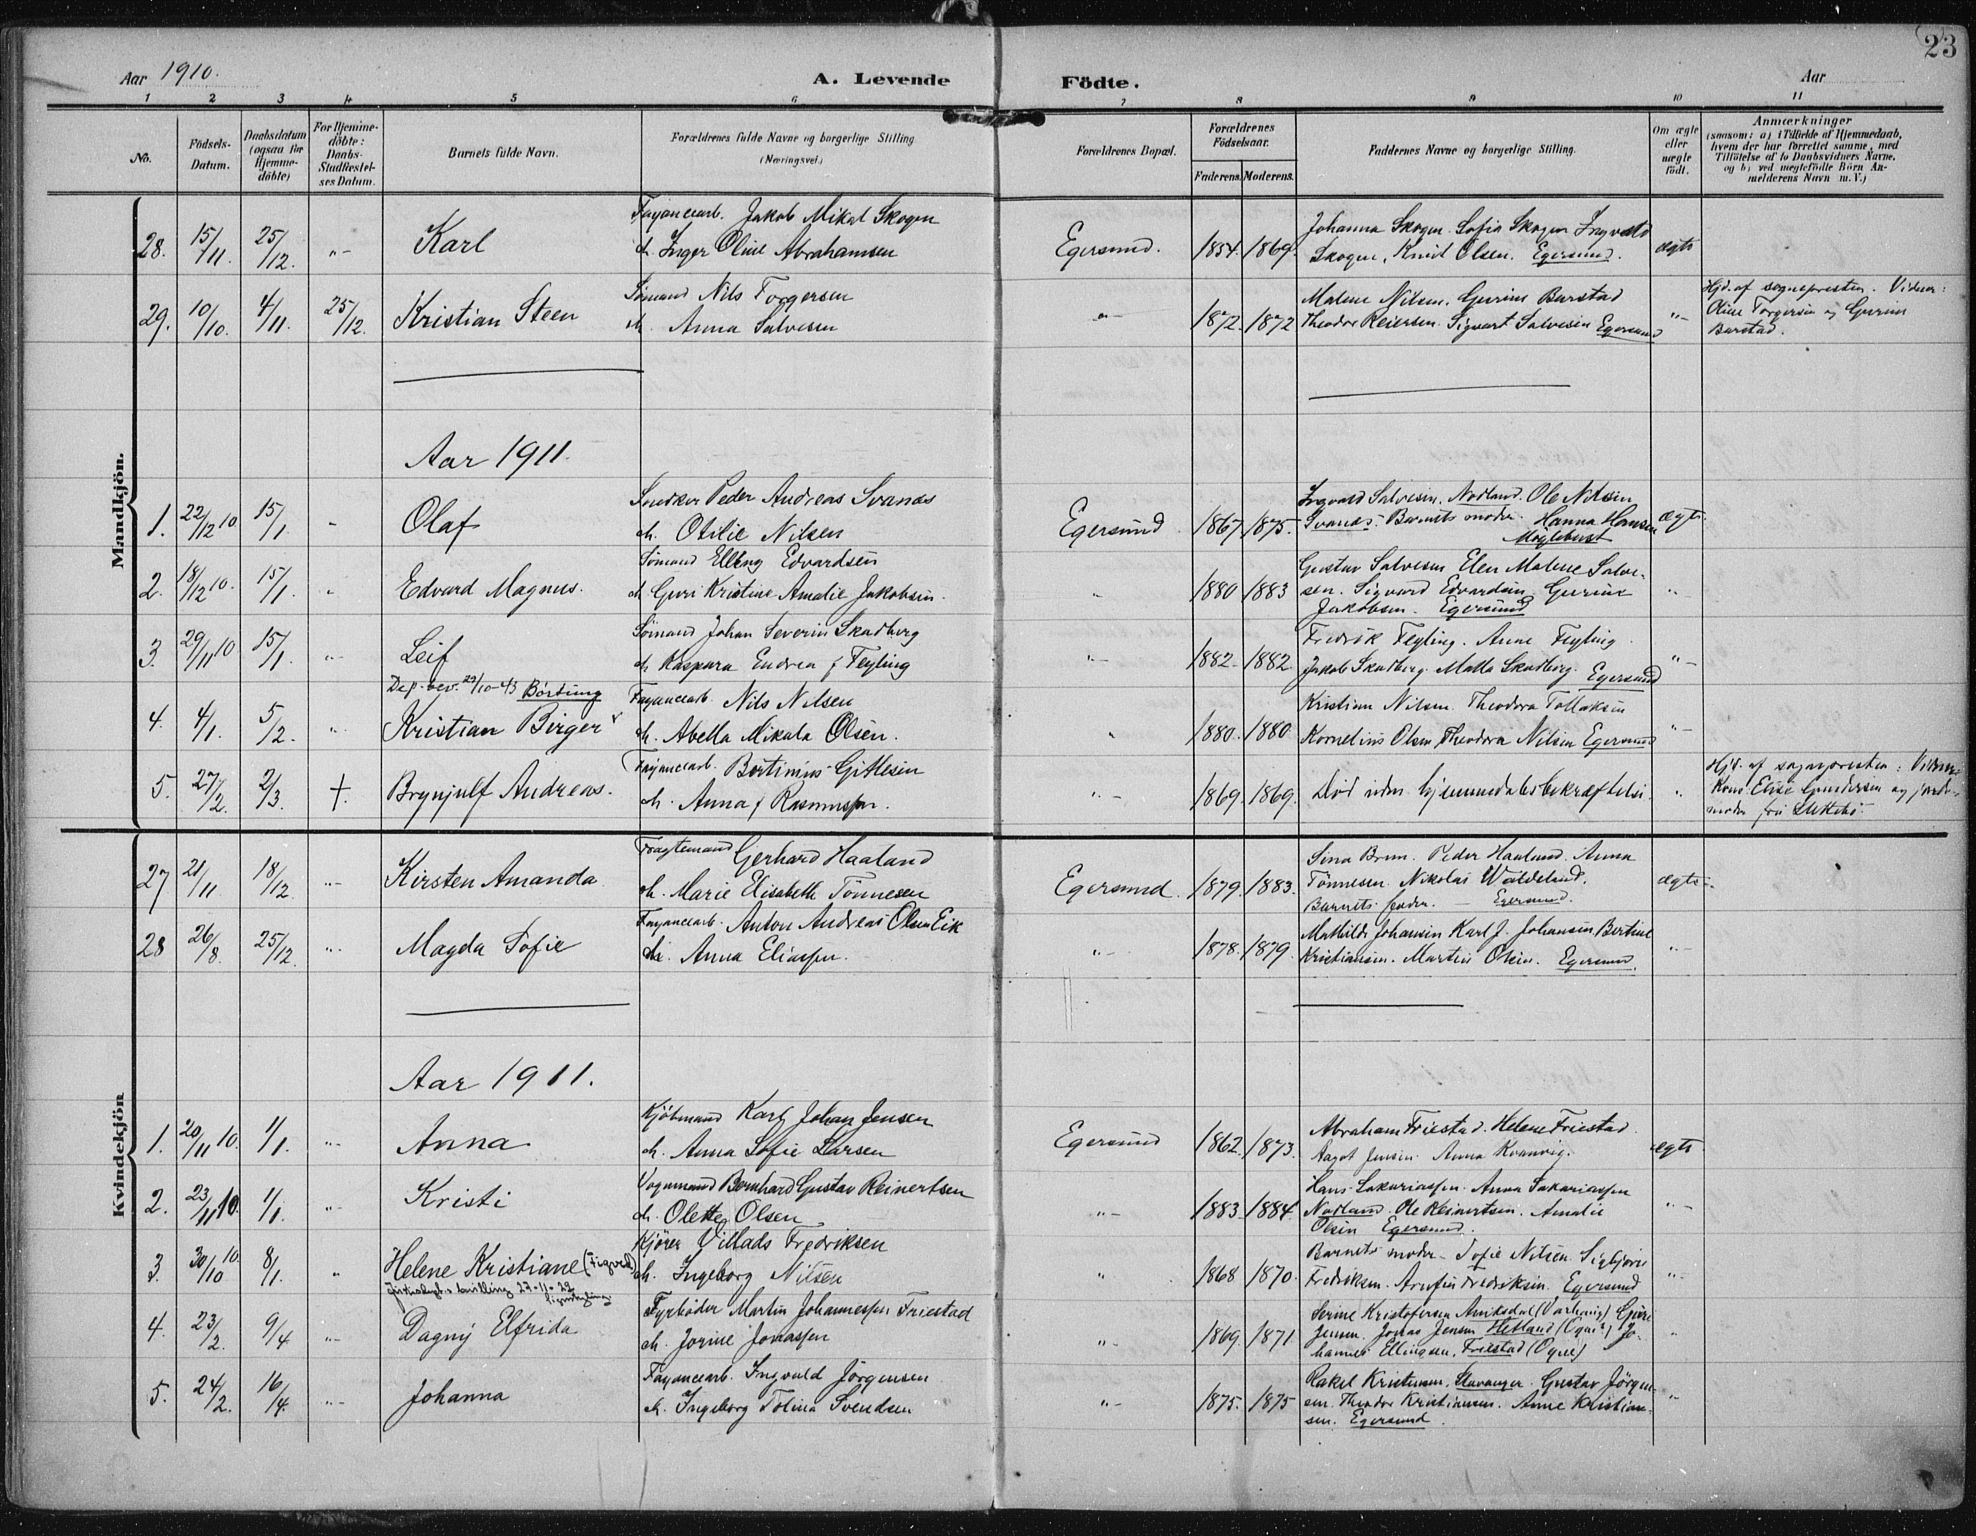 23
Aar 1910. A. Levende Födte. Aar
1 2 3 4 5 6 7 8 9 10 11
No. Födsels-Datum. Daabsdatum (ogsaa for Hjemme-döbte) For Hjemme-döbte: Daabs-Stadfæstel-ses Datum. Barnets fulde Navn. Forældrenes fulde Navne og borgerlige Stilling (Næringsvei.) Forældrenes Bopæl. Forældrenes Födselsaar. Faderens. Moderens. Faddernes Navne og borgerlige Stilling. Om ægte eller uægte födt. Anmærkninger (saasom: a) i Tilfælde af Hjemmedaab, hvem der har forrettet samme, med Tilföielse af to Daabsvidners Navne, og b) ved uægtefödte Börn An-melderens Navn m. V.)
Mandkjön.
28. 15/11. 25/12. "- Karl Fayancearb. Jakob Mikal Skogen
& Inger Oline Abrahamsen Egersund. 1854. 1869. Johanna Skogen. Sofia Skogen Ingvald
Skogen, Knut Olsen. Egersund. ægte
29. 10/10. 4/11. 25/12. Kristian Steen Sömand Nils Torgersen
& Anna Salvesen "- 1872. 1872 Malene Nilsen. Gurine Barstad
Theodor Reiersen. Sigvart Salvesen Egersund "- Hjd. af sognepresten. Vidner:
Oline Torgersen og Gurine
Barstad.
Aar 1911.
1. 22/12 10 15/1. - Olaf Snedker Peder Andreas Svanes
& Otilie Nilsen Egersund 1867. 1875. Ingvald Salvesen, Nodland. Ole Nilsen
Svanes. Barnets moder. Hanna Hansen
Mögleböst ægte
2. 18/12 10. 15/1. " Edvard Magnus. Sömand Elling Edvardsen
& Guri Kristine Amalie Jakobsen. " 1880 1883 Gustav Salvesen Elen Malene Salve-
sen. Sigvard Edvardsen, Gurine
Jakobsen. Egersund "-
3. 29/11 10 15/1. "- Leif Sömand Johan Severin Skadberg
& Kaspara Endrea f Feyling "- 1882. 1882. Fredrik Feyling. Anne Feyling.
Jakob Skadberg. Malla Skadberg. Egersund "-
Dep. bev. 29/10-43 Börtung
4. 4/1. 5/2. "- Kristian Birger Fayancearb. Nils Nilsen
& Abella Mikala Olsen. " 1880. 1880 Kristian Nilsen. Theodora Tollaksen
Kornelius Olsen, Theodora Nilsen Egersund "-
5. 27/2. 2/3. +. Brynjulf Andreas. Fayancearb. Bertinius Gitlesen
& Anna f Rasmussen. "- 1869. 1869. Död uden hjemmedaabsbekræftelse. " Hjd. af sognepresten: Vidner
Kone Elise Gundersen og jorde-
moder fru Slettebö.
Kvindekjön
27 21/11. 18/12. "- Kirsten Amanda Fragtemand Gerhard Haaland
& Marie Elisabeth Tönnesen Egersund. 1879. 1883. Sina Brun. Peder Haaland. Anna
Tönnesen. Nikolai Waldeland.
Barnets fader. — Egersund. ægte
28 26/8. 25/12. "- Magda Sofie Fayancearb. Anton Andreas Olsen Eik
& Anna Eliassen. "- 1878. 1879. Mathilde Johansen Karl J. Johansen Bertine
Kristiansen. Martin Olsen. Egersund. "-
Aar 1911.
1. 20/11 10. 1/1. "- Anna Kjöbmand Karl Johan Jensen
& Anna Sofie Larsen Egersund 1862. 1873. Abraham Friestad. Helene Friestad
Aagot Jensen. Anna Kvanvig. ægte
2. 23/11 10. 1/1. "- Kristi Vognmand Bernhard Gustav Reinertsen
& Olette Olsen "- 1883. 1884. Hans Sakariassen. Anna Sakariassen
Nodland. Ole Reinertsen. Amalie
Olsen Egersund. "-
3. 30/10 10. 8/1. " Helene Kristiane (Sigved) Kjörer Villads Fredriksen
& Ingeborg Nilsen " 1868 1870. Barnets moder. Sofie Nilsen. Sigbjörn
Fredriksen. Arnfin Fredriksen. Egersund "-
4. 23/2. 9/4 "- Dagny Elfrida Fyrböder Martin Johannessen Friestad
& Jorine Jonassen "- 1869. 1871. Serine Kristofersen Aniksdal (Varhaug) Gjine
Jensen. Jonas Jensen Hetland (Ogne) Jo-
hannes Ellingsen, Friestad (Ogne) "
5. 24/2. 16/4. "- Johanna Fayancearb. Ingvald Jörgensen
& Ingeborg Tolina Svendsen "- 1875. 1875 Rakel Kristensen, Stavanger. Gustav Jörgen-
sen. Theodor Kristiansen. Anne Kristian-
sen. Egersund. "